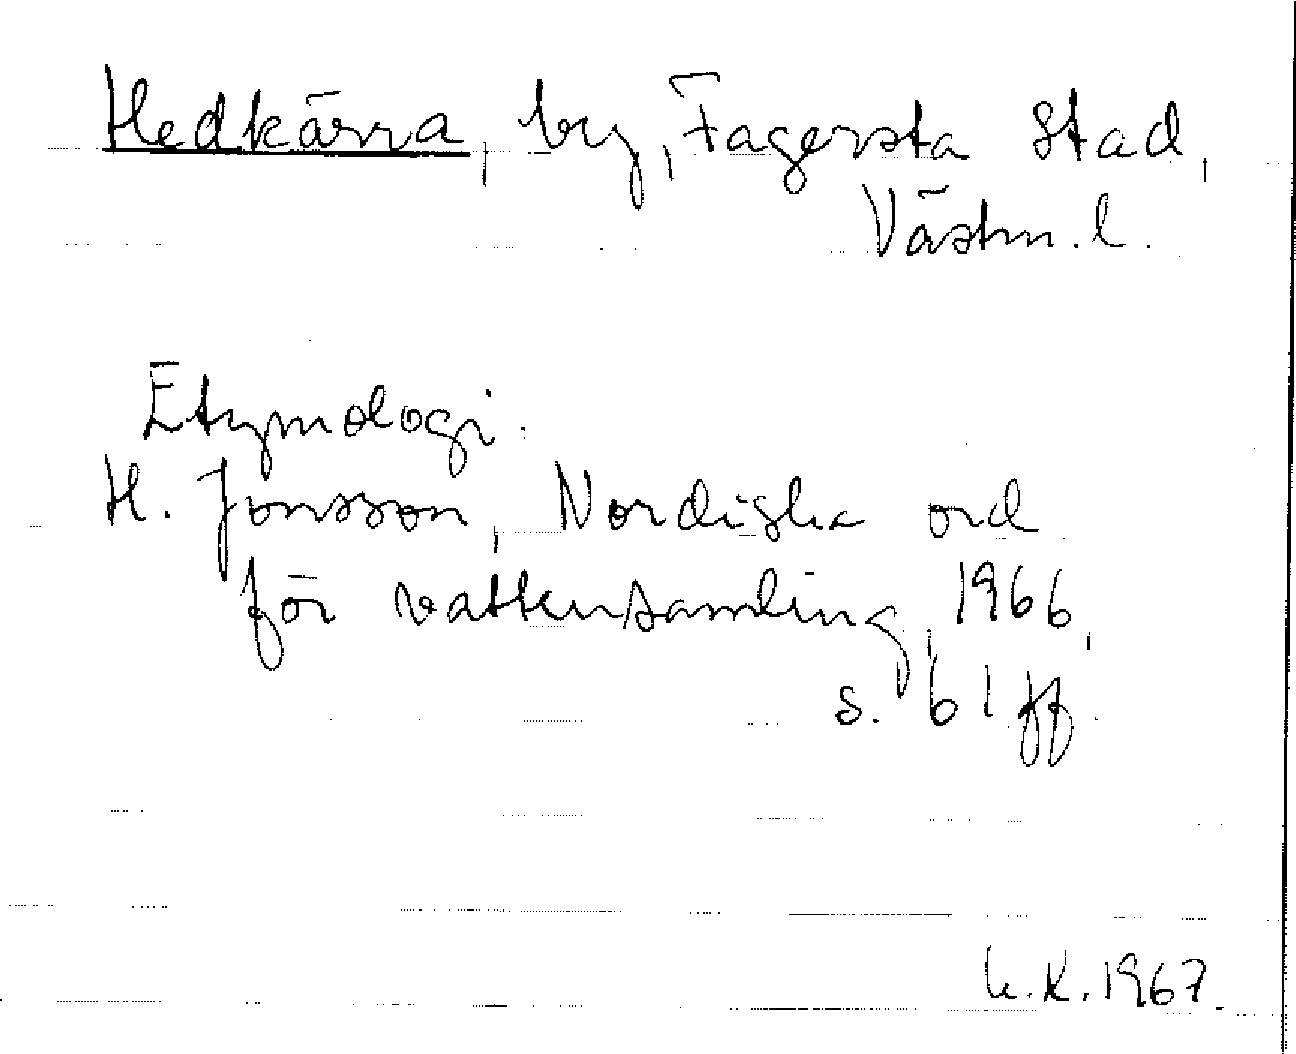 Hedkärra, by, Fagersta stad,
Västm. l.
Etymologi.
H. Jonsson, Nordiska ord
för vattensamling, 1966,
s. 61 ff.
K. 1967.